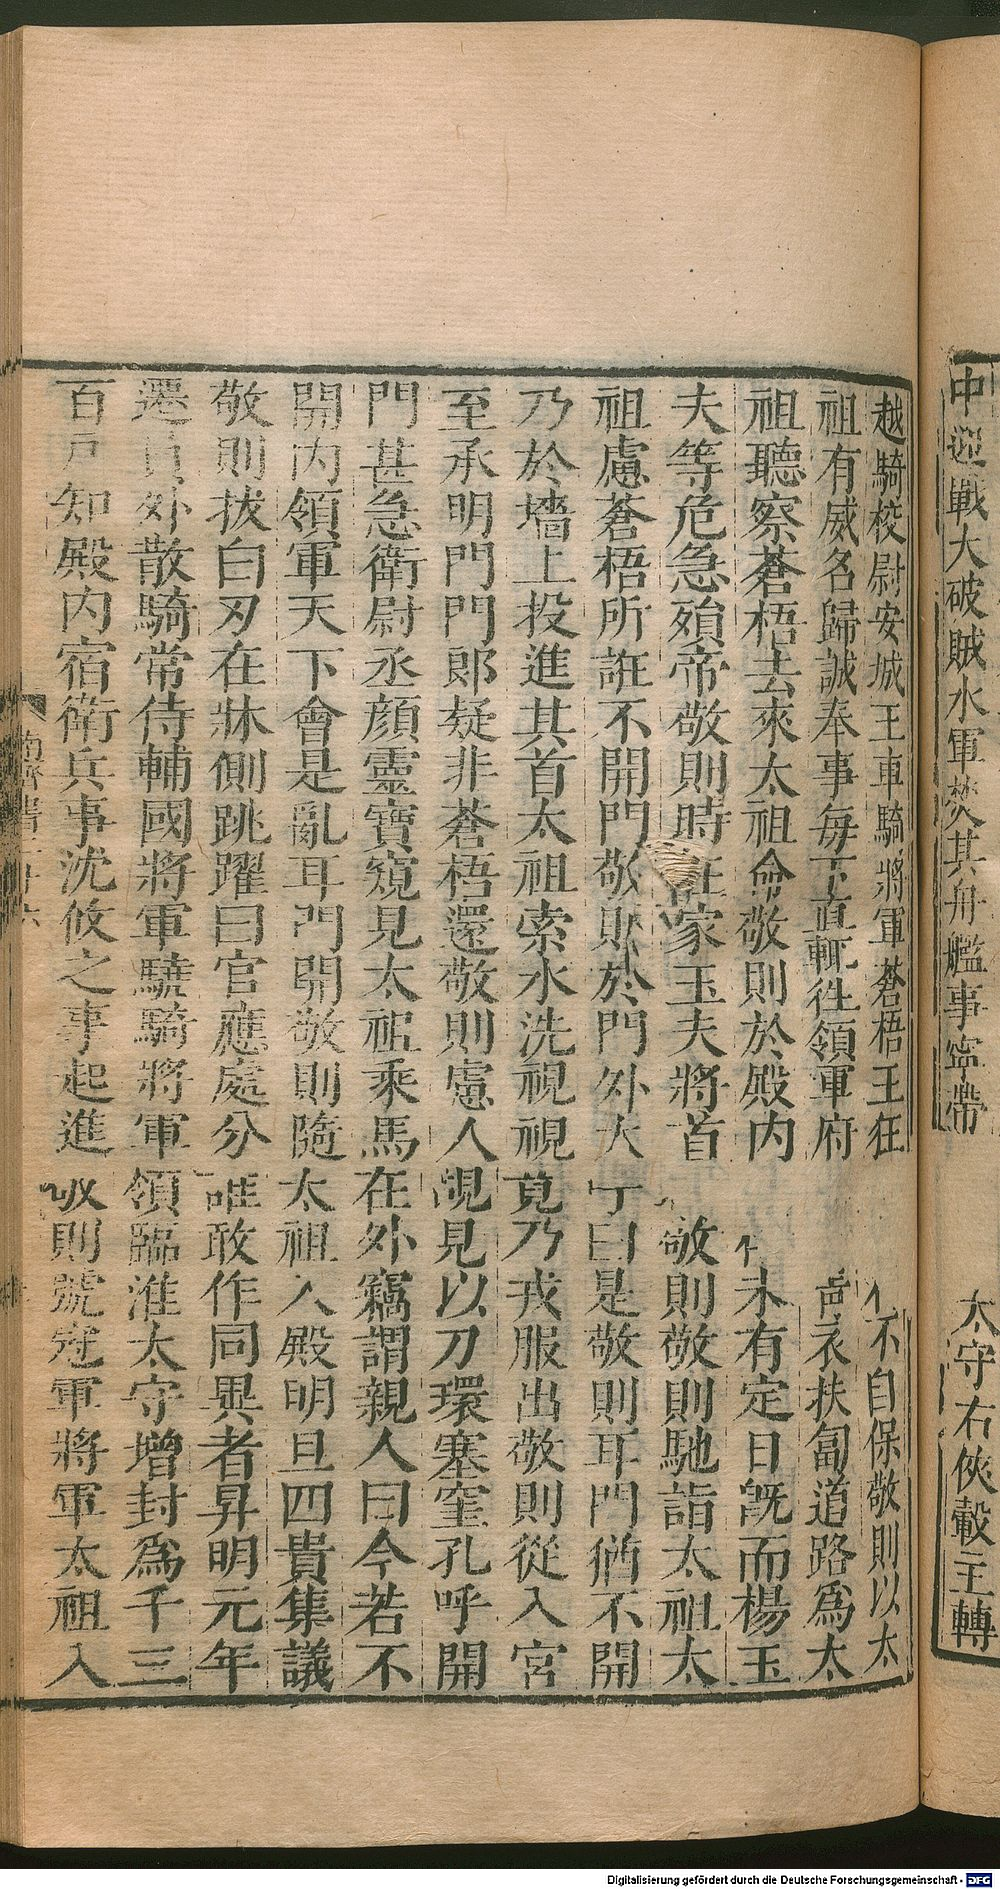 中迎戰大破賊水軍焚其舟艦事寧帶太守右俠轂主轉
越騎校尉安城王車騎將軍蒼梧王狂不自保敬則以太
祖有威名歸誠奉事每下直輒往領軍府衣扶匐道路爲太
祖聽察蒼梧去來太祖命敬則於殿內未有定日旣而楊玉
夫等危急殞帝敬則時在家玉夫將首敬則敬則馳詣太祖太
祖慮蒼梧所誑不開門敬則於門外大曰是敬則耳門猶不開
乃於墻上投進其首太祖索水洗視視竟乃戎服出敬則從入宮
至承明門門郎疑非蒼梧還敬則慮人覘見以刀環塞窐孔呼開
門甚急衛尉丞顏靈寶窺見太祖乘馬在外竊謂親人曰今若不
開內領軍天下會是亂耳門開敬則隨太祖入殿明旦四貴集議
敬則拔白刃在牀側跳躍曰官應處分誰敢作同異者昇明元年
遷員外散騎常侍輔國將軍驍騎將軍領臨淮太守增封爲千三
百戶知殿內宿衛兵事沈攸之事起進敬則號冠軍將軍太祖入
南齊書二十六
Digitalisierung gefördert durch die Deutsche Forschungsgemeinschaft - DFG